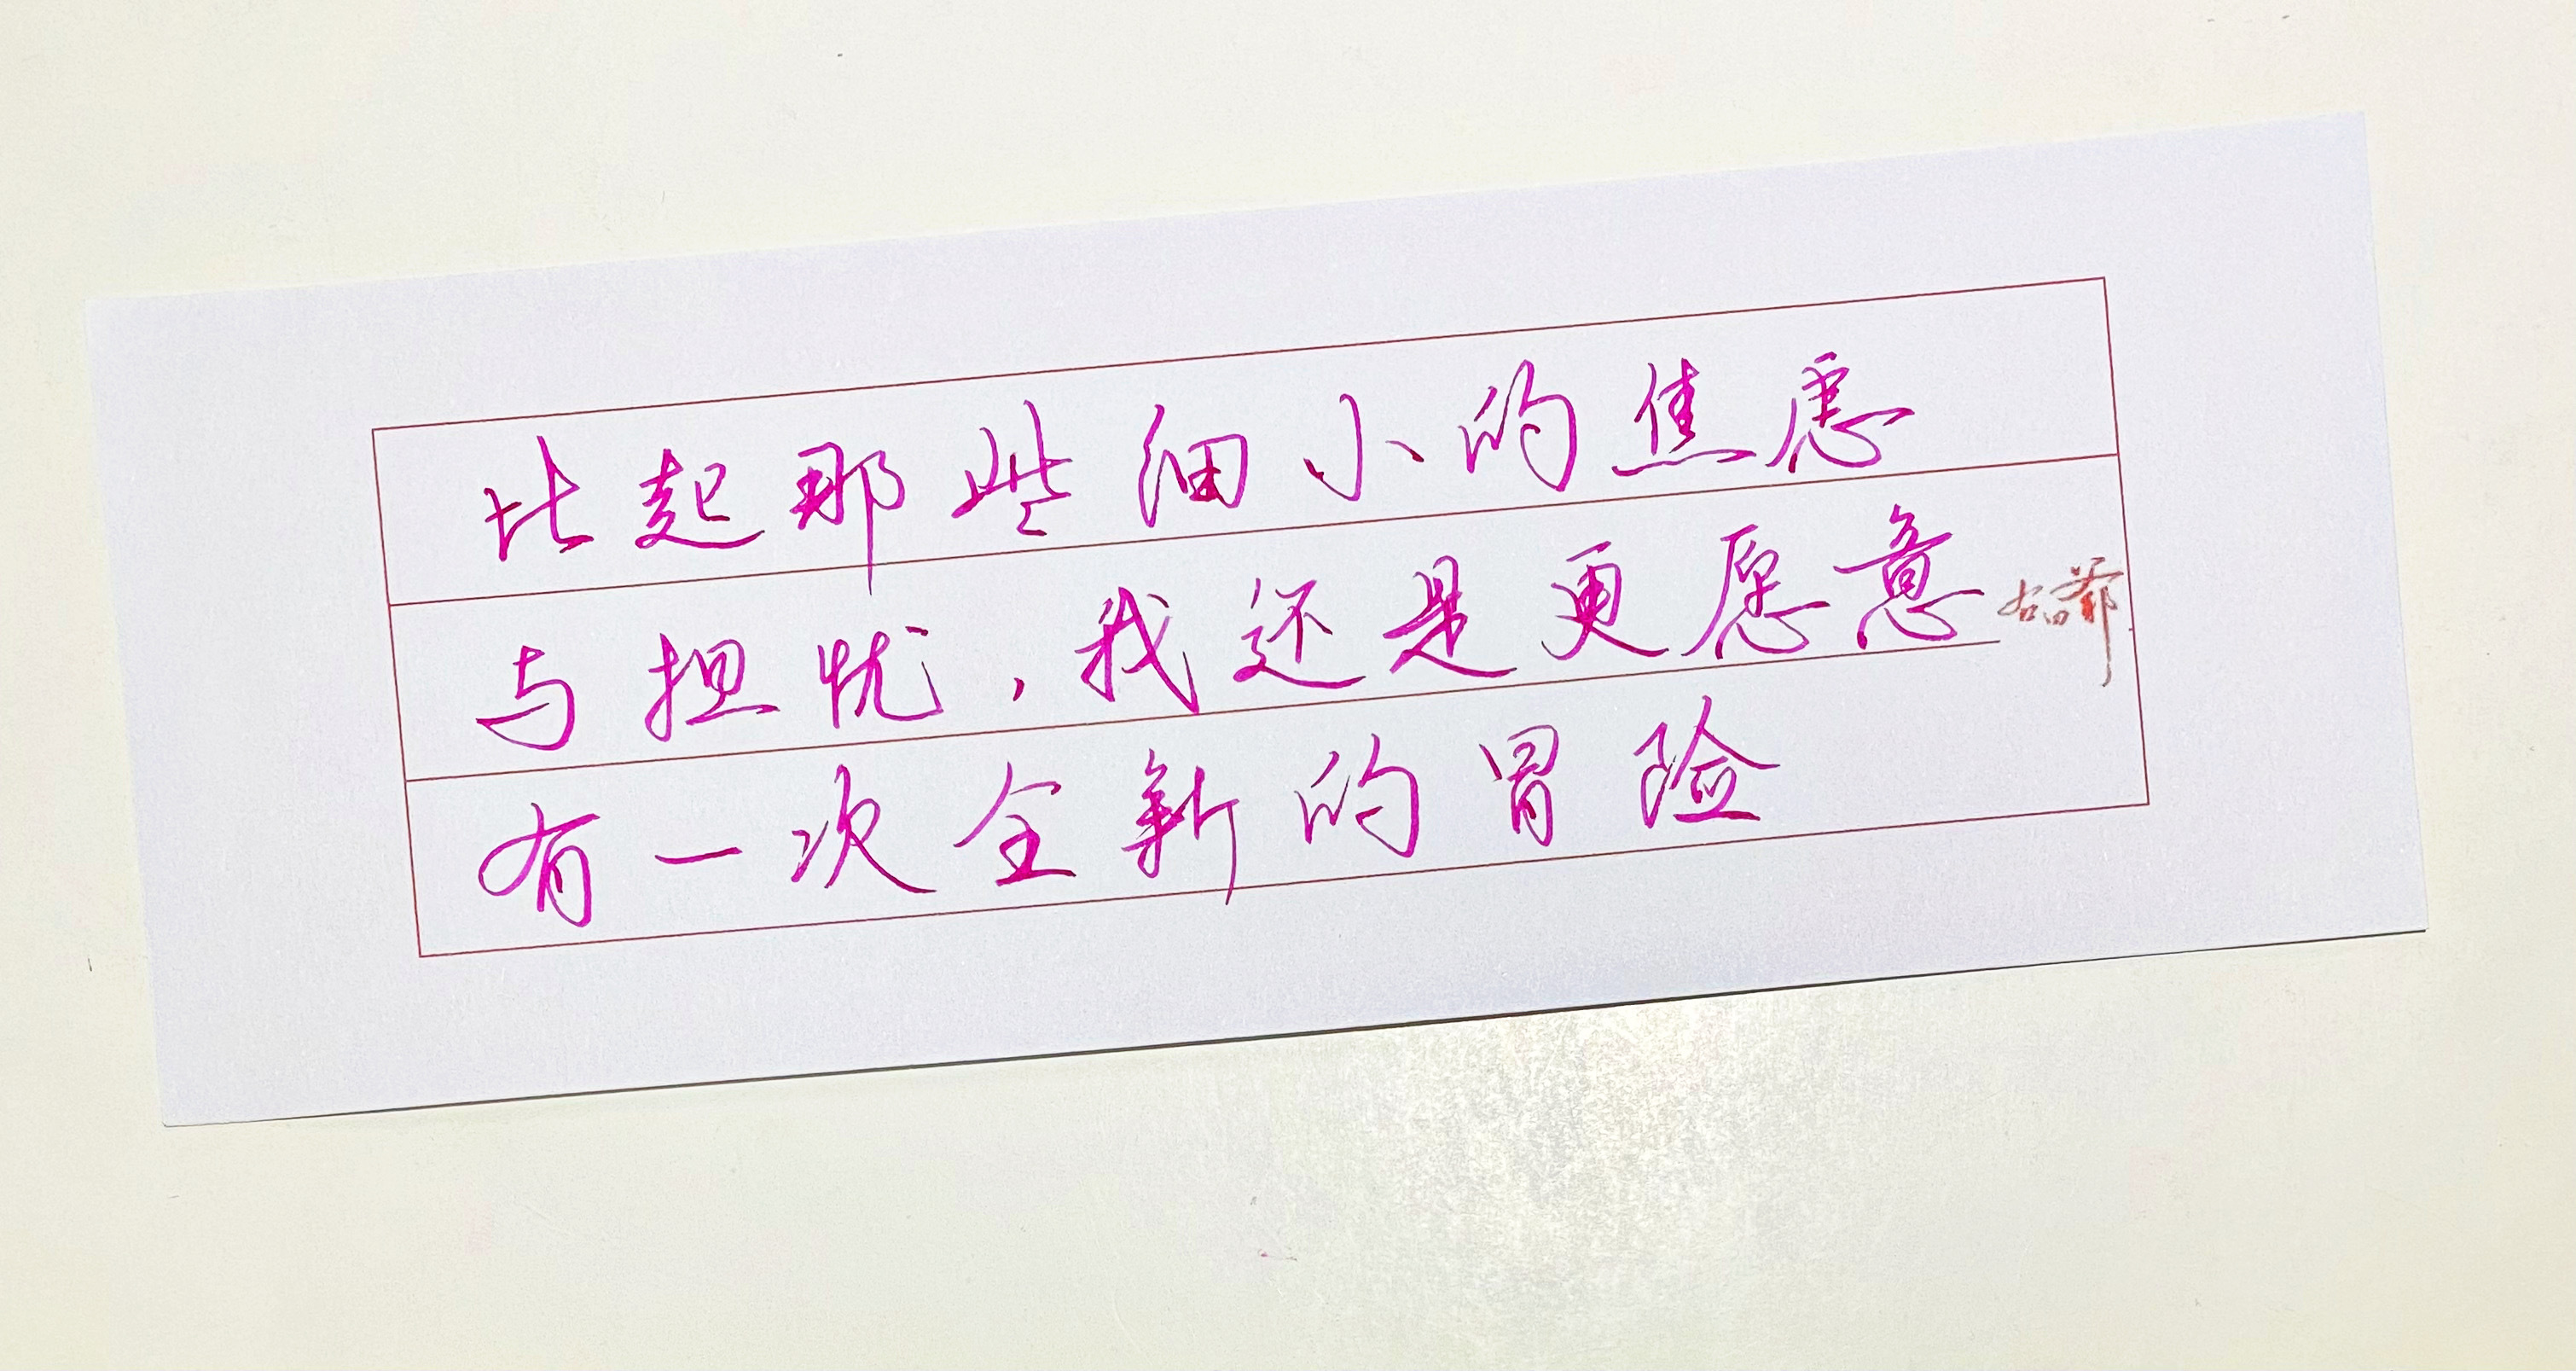 比起那些细小的焦虑
与担忧，我还是更愿意
有一次全新的冒险